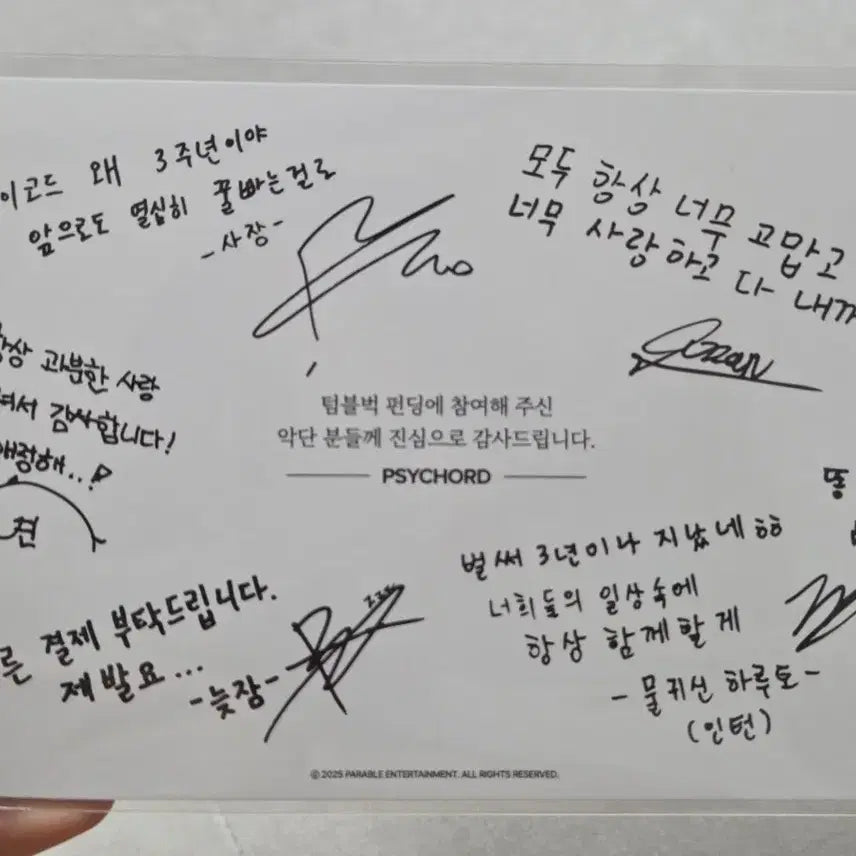 이코드 왜 3주년이야
앞으로도 열심히 꿀빠는걸로
-사장-
모두 항상 너무 고맙고
너무 사랑하고 다 내꺼
항상 과분한 사랑
감사합니다!
애정해..!
텀블벅 펀딩에 참여해 주신
악단 분들께 진심으로 감사드립니다.
PSYCHORD
른 결제 부탁드립니다.
제발요...
-늦잠-
벌써 3년이나 지났네 ㅎㅎ
너희들의 일상속에
항상 함께할게
-물귀신 하루토-
(인턴)
똥
© 2025 PARABLE ENTERTAINMENT. ALL RIGHTS RESERVED.